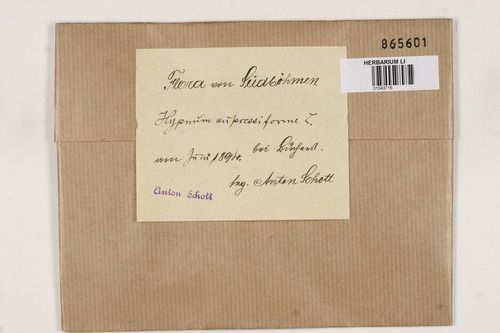 865601
HERBARIUM LI
01043716
Flora von Südböhmen
Hypnum cupressiforme L.
am Juni 1894. bei
leg. Anton Schott
Anton Schott